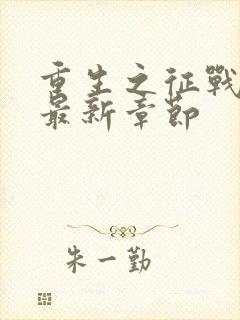 重生之征戰
最新章節
朱一勤